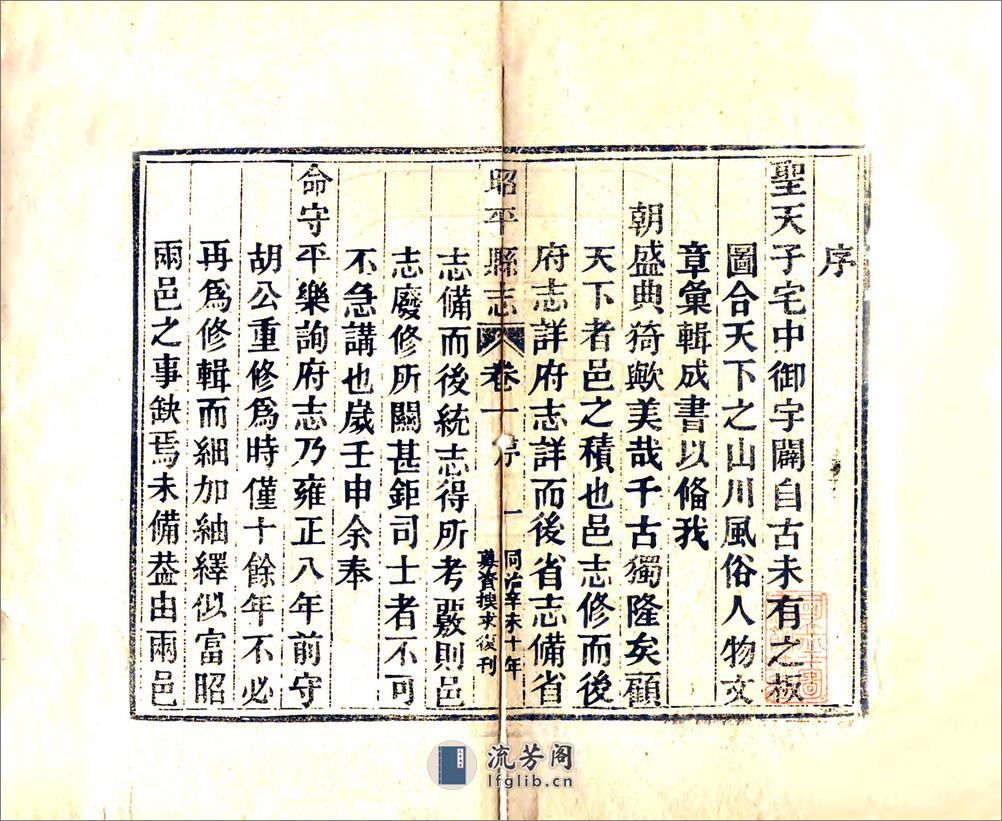 序
聖天子宅中御宇闢自古未有之板
圖合天下之山川風俗人物文
章彙輯成書以僃我
朝盛典猗歟美哉千古獨隆矣顧
天下者邑之積也邑志修而後
府志詳府志詳而後省志備省
昭平縣志 卷一 序 一 同治辛未十年
募資搜求復刊
志備而後統志得所考覈則邑
志廢修所關甚鉅司土者不可
不急講也嵗壬申余奉
命守平樂詢府志乃雍正八年前守
胡公重修爲時僅十餘年不必
再爲修輯而細加紬繹似富昭
兩邑之事缺焉未備葢由兩邑
流芳阁
lfglib.cn